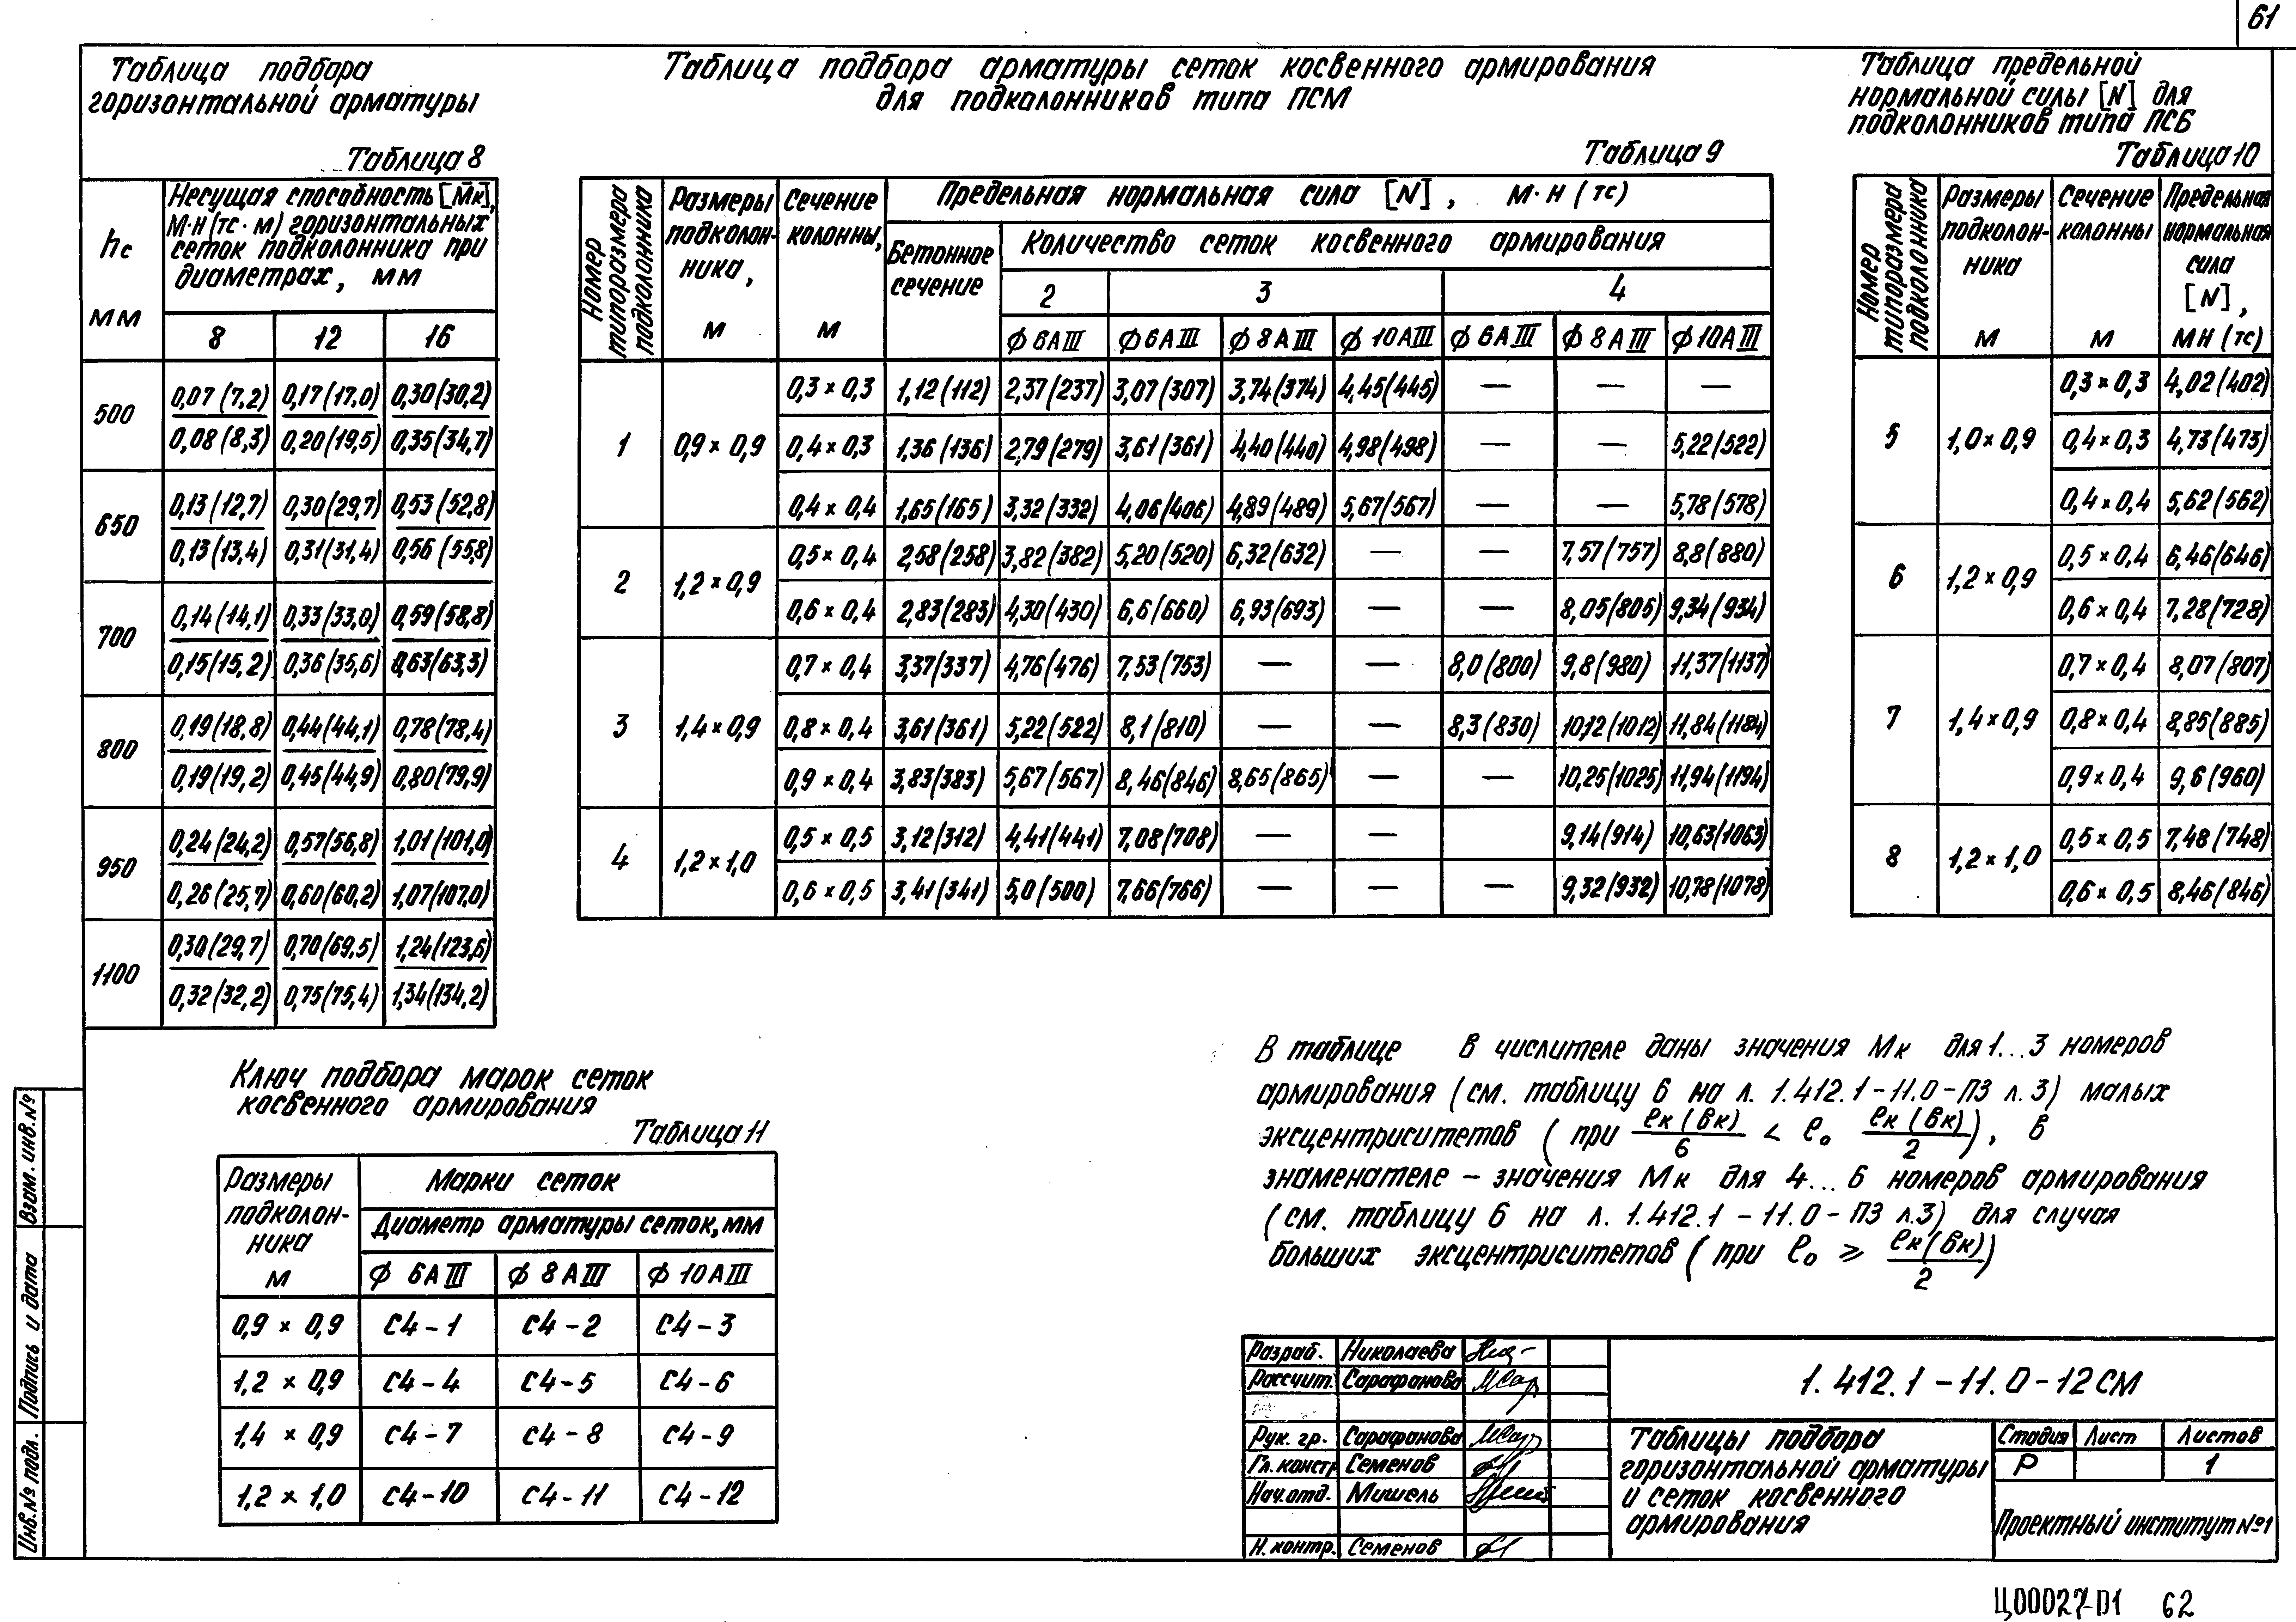 61
Таблица подбора
горизонтальной арматуры
Таблица 8
hс
мм
Несущая способность [Mк],
М·Н (тс·м) горизонтальных
сеток подколонника при
диаметрах, мм
8 12 16
500 0,07 (7,2) 0,17 (17,0) 0,30 (30,2)
0,08 (8,3) 0,20 (19,5) 0,35 (34,7)
650 0,13 (12,7) 0,30 (29,7) 0,53 (52,8)
0,13 (13,4) 0,31 (31,4) 0,56 (55,8)
700 0,14 (14,1) 0,33 (33,0) 0,59 (58,8)
0,15 (15,2) 0,36 (35,6) 0,63 (63,3)
800 0,19 (18,8) 0,44 (44,1) 0,78 (78,4)
0,19 (19,2) 0,45 (44,9) 0,80 (79,9)
950 0,24 (24,2) 0,57 (56,8) 1,01 (101,0)
0,26 (25,7) 0,60 (60,2) 1,07 (107,0)
1100 0,30 (29,7) 0,70 (69,5) 1,24 (123,6)
0,32 (32,2) 0,75 (75,4) 1,34 (134,2)
Таблица подбора арматуры сеток косвенного армирования
для подколонников типа ПСМ
Таблица 9
Номер
типоразмера
подколонника
Размеры
подколон-
ника,
м
Сечение
колонны,
м
Предельная нормальная сила [N], М·Н (тс)
Бетонное
сечение
Количество сеток косвенного армирования
2 3 4
φ 6АIII φ 6АIII φ 8АIII φ 10АIII φ 6АIII φ 8АIII φ 10АIII
1 0,9 × 0,9 0,3 × 0,3 1,12 (112) 2,37 (237) 3,07 (307) 3,74 (374) 4,45 (445) — — —
0,4 × 0,3 1,36 (136) 2,79 (279) 3,61 (361) 4,40 (440) 4,98 (498) — — 5,22 (522)
0,4 × 0,4 1,65 (165) 3,32 (332) 4,06 (406) 4,89 (489) 5,67 (567) — — 5,78 (578)
2 1,2 × 0,9 0,5 × 0,4 2,58 (258) 3,82 (382) 5,20 (520) 6,32 (632) — — 7,57 (757) 8,8 (880)
0,6 × 0,4 2,83 (283) 4,30 (430) 6,6 (660) 6,93 (693) — — 8,05 (805) 9,34 (934)
3 1,4 × 0,9 0,7 × 0,4 3,37 (337) 4,76 (476) 7,53 (753) — — 8,0 (800) 9,8 (980) 11,37 (1137)
0,8 × 0,4 3,61 (361) 5,22 (522) 8,1 (810) — — 8,3 (830) 10,12 (1012) 11,84 (1184)
0,9 × 0,4 3,83 (383) 5,67 (567) 8,46 (846) 8,65 (865) — — 10,25 (1025) 11,94 (1194)
4 1,2 × 1,0 0,5 × 0,5 3,12 (312) 4,41 (441) 7,08 (708) — — 9,14 (914) 10,63 (1063)
0,6 × 0,5 3,41 (341) 5,0 (500) 7,66 (766) — — — 9,32 (932) 10,78 (1078)
Таблица предельной
нормальной силы [N] для
подколонников типа ПСБ
Таблица 10
Номер
типоразмера
подколонника
Размеры
подколон-
ника
м
Сечение
колонны
м
Предельная
нормальная
сила
[N],
МН (тс)
5 1,0 × 0,9 0,3 × 0,3 4,02 (402)
0,4 × 0,3 4,73 (473)
0,4 × 0,4 5,62 (562)
6 1,2 × 0,9 0,5 × 0,4 6,46 (646)
0,6 × 0,4 7,28 (728)
7 1,4 × 0,9 0,7 × 0,4 8,07 (807)
0,8 × 0,4 8,85 (885)
0,9 × 0,4 9,6 (960)
8 1,2 × 1,0 0,5 × 0,5 7,48 (748)
0,6 × 0,5 8,46 (846)
Ключ подбора марок сеток
косвенного армирования
Таблица 11
Размеры
подколон-
ника
м
Марки сеток
Диаметр арматуры сеток, мм
φ 6АIII φ 8АIII φ 10АIII
0,9 × 0,9 С4-1 С4-2 С4-3
1,2 × 0,9 С4-4 С4-5 С4-6
1,4 × 0,9 С4-7 С4-8 С4-9
1,2 × 1,0 С4-10 С4-11 С4-12
В таблице в числителе даны значения Мк для 1...3 номеров
армирования (см. таблицу 6 на л. 1.412.1-11.0-ПЗ л. 3) малых
эксцентриситетов (при ℓк (вк)/6 < ℓо ℓк (вк)/2), в
знаменателе – значения Мк для 4...6 номеров армирования
(см. таблицу 6 на л. 1.412.1-11.0-ПЗ л.3) для случая
больших эксцентриситетов (при ℓо ⩾ ℓк (вк)/2)
Разраб. Николаева
Рассчит. Сарафанова
Рук. гр. Сарафанова
Гл. констр Семенов
Нач. отд. Мишель
Н. контр. Семенов
1.412.1-11.0-12СМ
Таблицы подбора
горизонтальной арматуры
и сеток косвенного
армирования
Стадия Лист Листов
Р 1
Проектный институт №1
Инв.№ подл. Подпись и дата Взам. инв.№
Ц00027-01 62